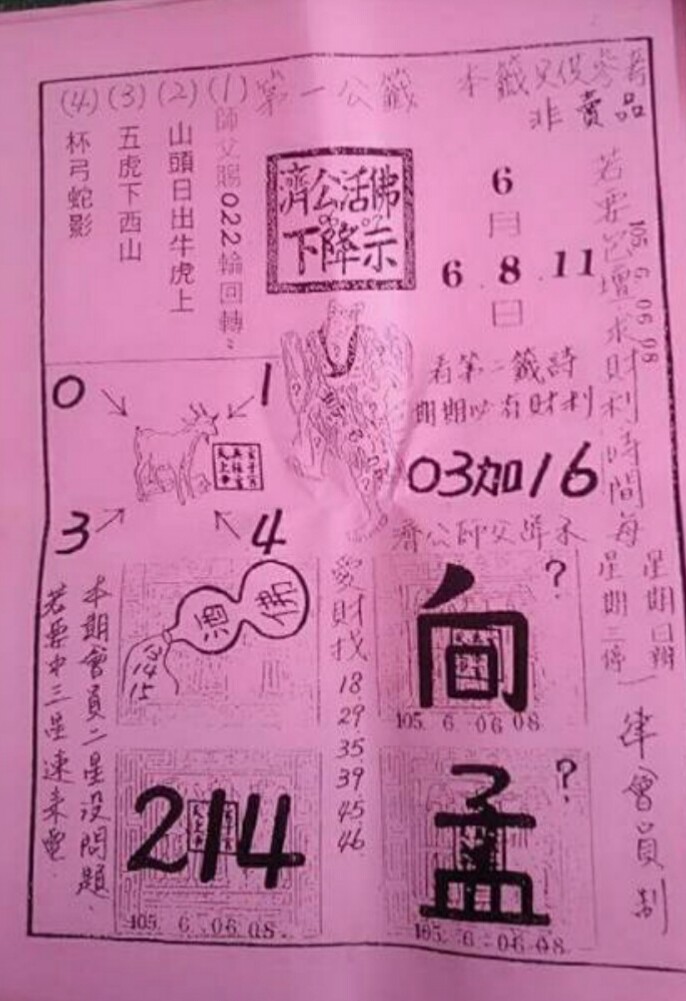 本籤只供參考
非賣品
第一公籤
(1) 師父賜022輪回轉
(2) 山頭日出牛虎上
(3) 五虎下西山
(4) 杯弓蛇影
濟公活佛
下降示
6
月
6.8.11
日
105 6 06 08
看第二籤詩
期期必有財利
03加16
濟公師父降示
0
1
3
4
若要
壇求財利時間每
星期
星期三
律會員制
佛
酒
14
15
愛財找
18
29
35
39
45
46
向
?
105. 6. 06 08
214
105. 6. 06.08.
孟
?
105. 6. 06.08
本期會員二星沒問題
若要中三星速來電